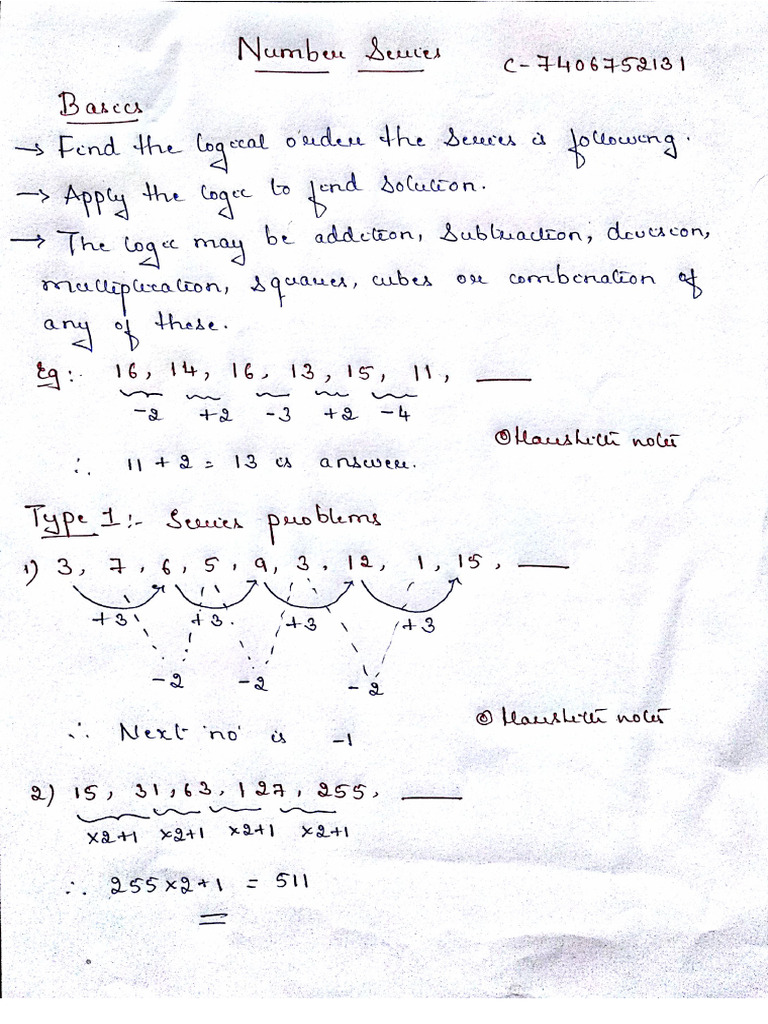 Number Series
C-7406752131
Basics
→ Find the logical order the series is following.
→ Apply the logic to find solution.
→ The logic may be addition, subtraction, division,
multiplication, squares, cubes or combination of
any of these.
Eg:- 16, 14, 16, 13, 15, 11, ___
-2 +2 -3 +2 -4
∴ 11 + 2 = 13 is answer.
Type 1:- Series problems
1) 3, 7, 6, 5, 9, 3, 12, 1, 15, ___
+3 +3 +3 +3
-2 -2 -2
∴ Next 'no' is -1
2) 15, 31, 63, 127, 255, ___
×2+1 ×2+1 ×2+1 ×2+1
∴ 255×2+1 = 511